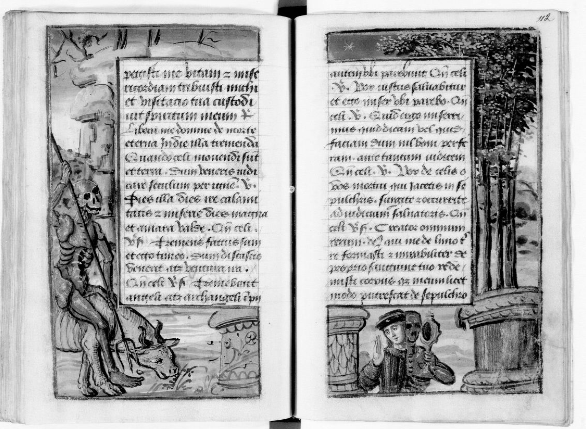 petisti me vitam z mise
ricordiam tribuisti michi
et visitacio tua custodi
uit spiritum meum R
Libera me domine de morte
eterna In die illa tremenda
Quando celi mouendi sūt
et terra. Dum veneris iudi
care seculum per igne. V.
Dies illa dies ire calami
tatis z miserie dies magna
et amara valde. Qn̄ celi.
Vs. Tremens factus sum
et ego timeo. Dum discussio
venerit atq ventura ira.
Qn̄ celi Vs. Tremebunt
angeli atq archangeli īpij
112
autem vbi parebunt Qn̄ celi
V. Vix iustus saluabitur
et ego miser vbi parebo. Qn̄
celi. V. Quid ergo miserri
mus quid dicam vel quid
faciam dum nil boni perfe
ram. ante tantum iudicem
Qn̄ celi. V. Vox de celis o
vos mortui qui iacetis in se
pulchris. surgite z occurrite
ad iudicium saluatoris. Qn̄
celi Vs. Creator omnium
rerum. deus qui me de limo t̄
re formasti z mirabiliter de
proprio sanguine tuo rede
misti corpus q meum licet
modo putrescat de sepulchro